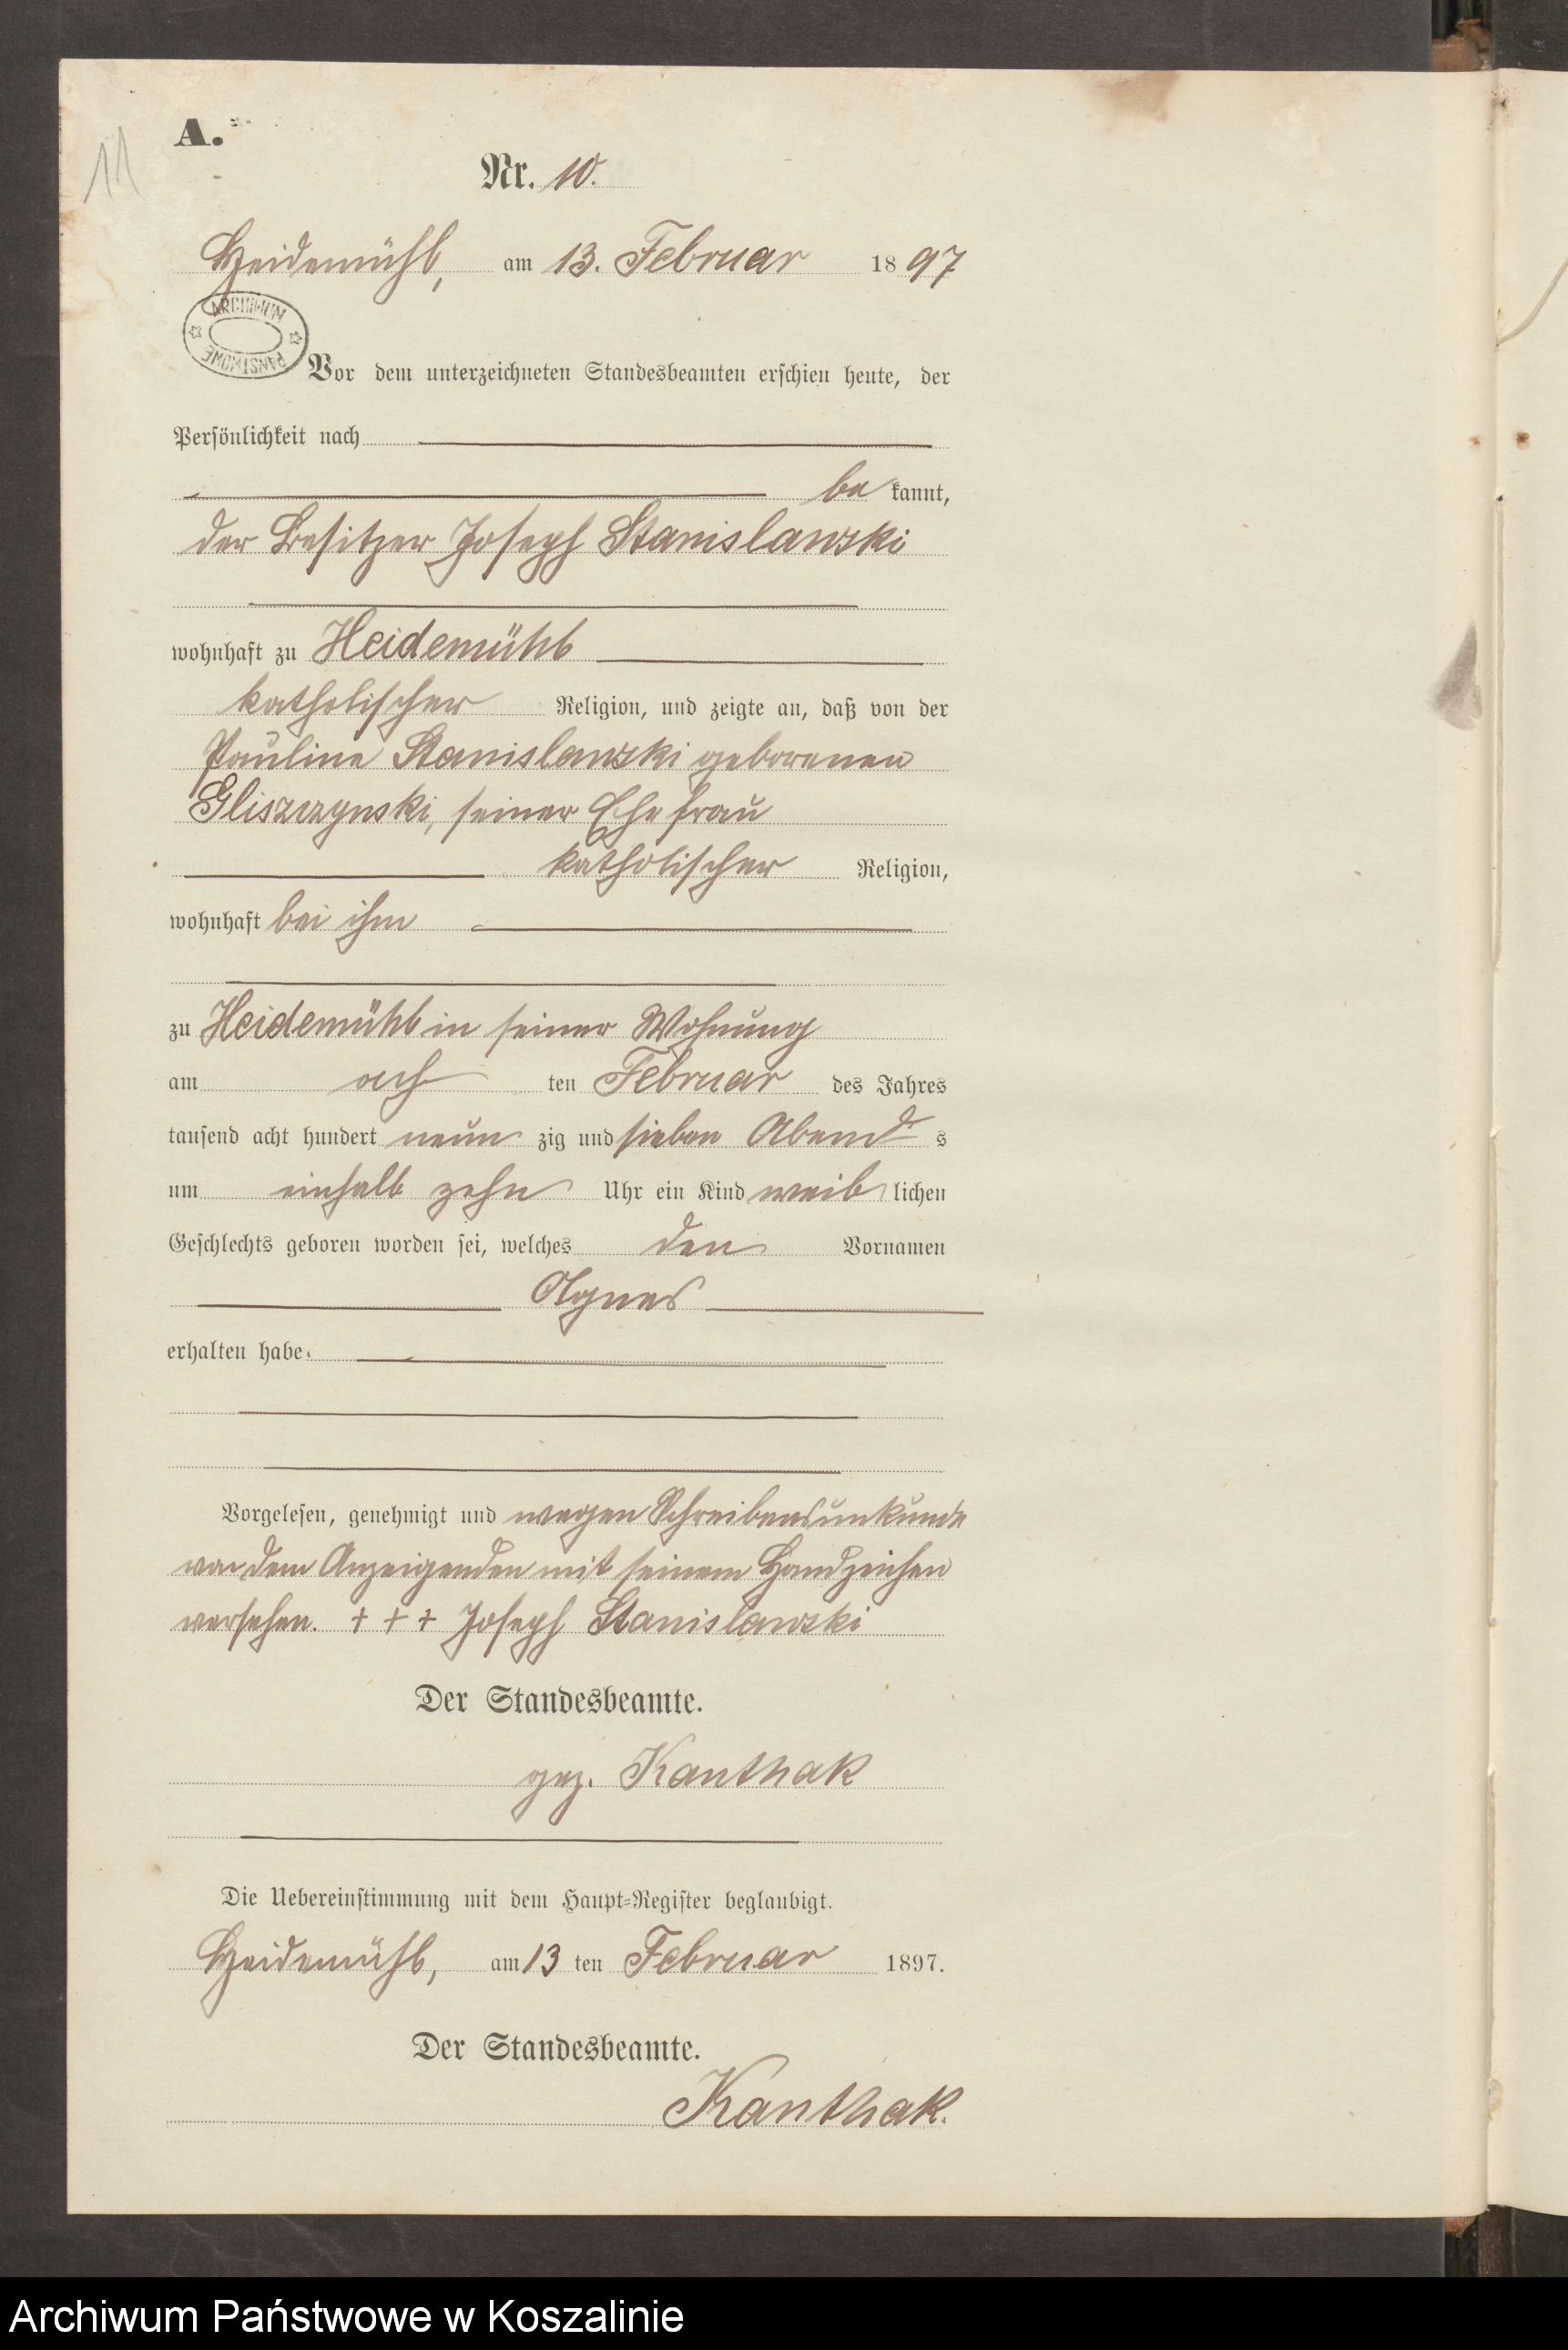 A.
11
Nr. 10.
Heidemühl, am 13. Februar 1897
ARCHIWUM PAŃSTWOWE
Vor dem unterzeichneten Standesbeamten erschien heute, der
Persönlichkeit nach
bekannt,
der Besitzer Joseph Stanislawski
wohnhaft zu Heidemühl
katholischer Religion, und zeigte an, daß von der
Pauline Stanislawski geborenen
Gliszczynski, seiner Ehefrau
katholischer Religion,
wohnhaft bei ihm
zu Heidemühl in seiner Wohnung
am achten Februar des Jahres
tausend acht hundert neunzig und sieben Abends
um einhalb zehn Uhr ein Kind weiblichen
Geschlechts geboren worden sei, welches den Vornamen
Agnes
erhalten habe.
Vorgelesen, genehmigt und wegen Schreibensunkunde
von dem Anzeigenden mit seinem Handzeichen
versehen. + + + Joseph Stanislawski
Der Standesbeamte.
gez. Kanthak
Die Uebereinstimmung mit dem Haupt-Register beglaubigt.
Heidemühl, am 13 ten Februar 1897.
Der Standesbeamte.
Kanthak.
Archiwum Państwowe w Koszalinie